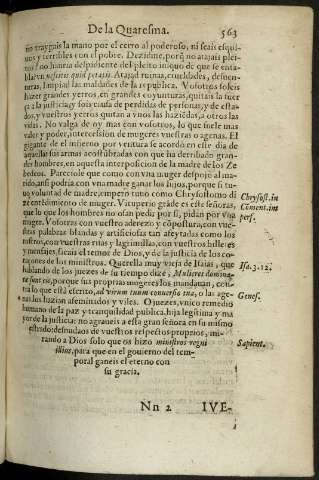 De la Quaresma. 563
no traygais la mano por el cerro al poderoso, ni seais esqui-
uos y terribles con el pobre. Dezidme, porq̃ no atajais plei-
tos? no hauria despidiente del pleito iniquo de que se enta-
bla? vn nescitis quid petatis. Atajad ruinas, crueldades, desuen-
turas, limpiad las maldades de la republica. Vosotros soleis
hazer grandes yerros, en grandes coyunturas, quitais la fuer
ça a la justicia, y sois causa de perdidas de personas, y de esta-
dos, y vuestros yerros quitan a vnos las haziẽdas, a otros las
vidas. No valga de oy mas con vosotros, lo que suele mas
valer y poder, intercession de mugeres vuestras o agenas. El
gigante de el infierno por ventura se acordò en este dia de
aquellas sus armas acostũbradas con que ha derribado gran-
des hombres, en aquesta interposicion de la madre de los Ze
bedeos. Pareciole que como con vna muger despojò al ma-
rido, ansi podria con vna madre ganar los hijos, porque si tu-
uo voluntad de madre, empero tuuo como Chrysostomo di
ze entẽdimiento de muger. Vituperio grãde es este señoras,
que lo que los hombres no osan pedir por si, pidan por vna
muger. Vosotras con vuestro aderezo y cõpostura, con vue-
stras palabras blandas y artificiosas tan afeytadas como los
rostros, con vuestras ritas y lagrimillas, con vuestros billetes
y mensajes, sacais el temor de Dios, y de la justicia de los co-
razones de los ministros. Querella muy vieja de Isaias, que
hablando de los juezes de su tiempo dize, Mulieres domina-
te sunt eis, porque sus proprias mugeres los mandauan, con-
tra lo que està escrito, ad virum tuum conuersio tua, o las age-
nas los hazian afeminados y viles. O juezes, vnico remedio
humano de la paz y tranquilidad publica, hija legitima y ma
yor de la justicia: no agraueis a esta gran señora en su mismo
estrado: desnudaos de vuestros respectos proprios, mi-
rando a Dios solo que os hizo ministros regni
illius, para que en el gouierno del tem-
poral ganeis el eterno con
su gracia.
Chrysost. in
Cõment. im
perf.
Isa. 3. 12.
Genes.
Sapient.
Nn 2 IVE-